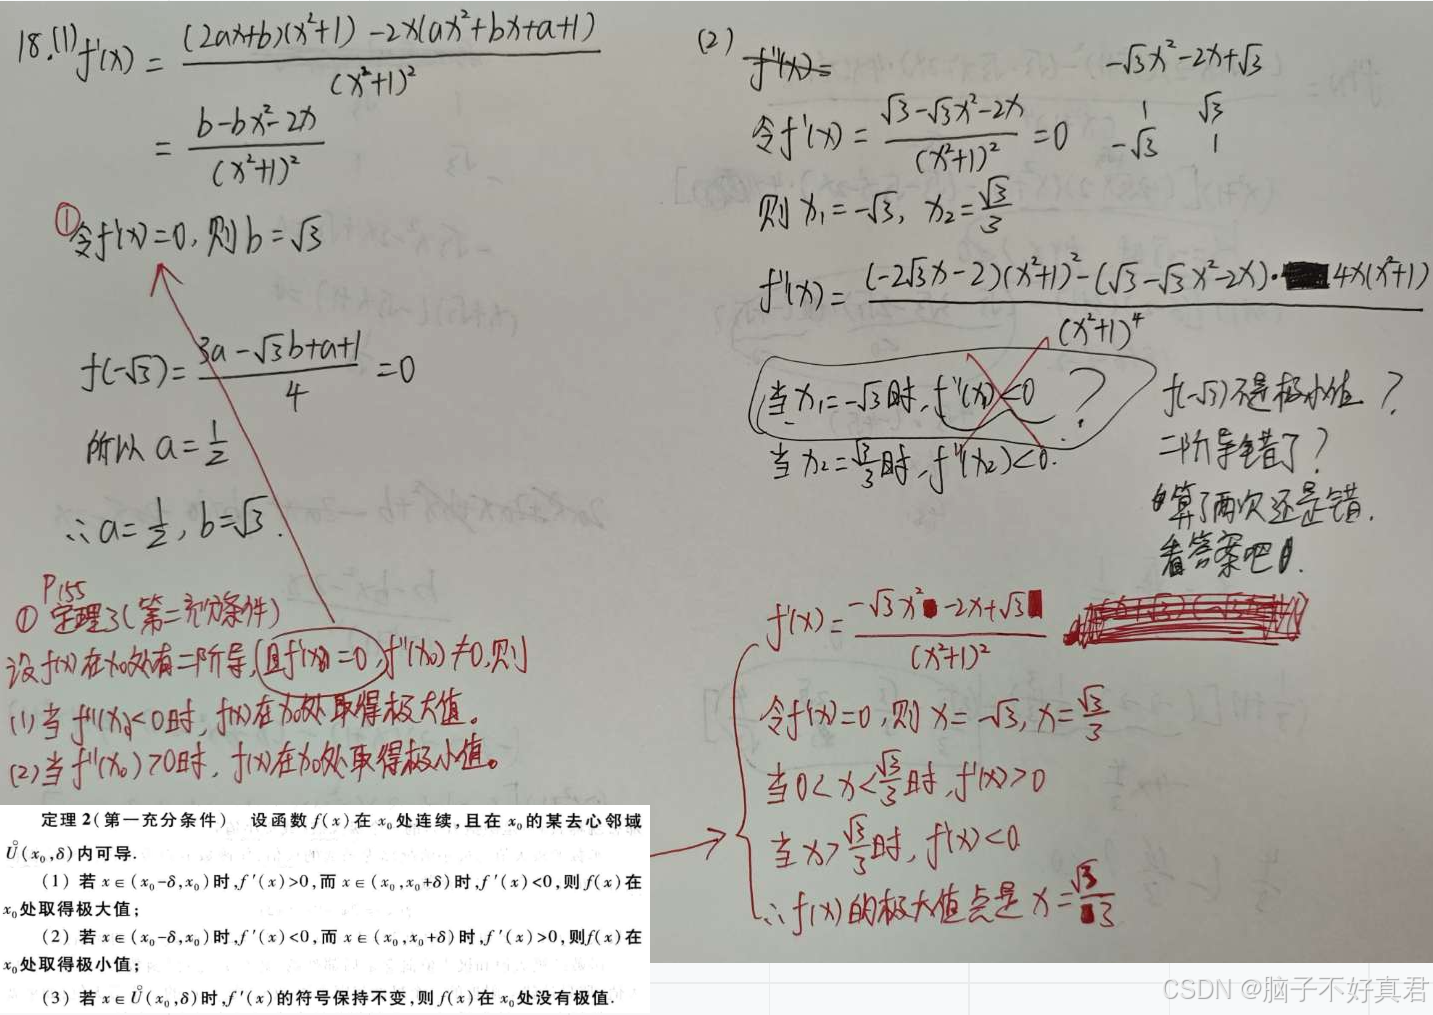 18.(1) f'(x) = \frac{(2ax+b)(x²+1) -2x(ax²+bx+a+1)}{(x²+1)²}
= \frac{b-bx²-2x}{(x²+1)²}
① 令f'(x)=0, 则b=√3
f(-√3)= \frac{3a-√3b+a+1}{4} =0
所以 a=\frac{1}{2}
∴ a=\frac{1}{2}, b=√3.
P155
① 定理3(第二充分条件)
设f(x)在x₀处有二阶导,且f'(x₀)=0,f''(x₀)≠0,则
(1)当f''(x₀)<0时,f(x)在x₀处取得极大值。
(2)当f''(x₀)>0时,f(x)在x₀处取得极小值。
定理2(第一充分条件) 设函数f(x)在x₀处连续,且在x₀的某去心邻域
Ů(x₀,δ)内可导.
(1) 若x∈(x₀-δ,x₀)时,f'(x)>0,而x∈(x₀,x₀+δ)时,f'(x)<0,则f(x)在
x₀处取得极大值;
(2) 若x∈(x₀-δ,x₀)时,f'(x)<0,而x∈(x₀,x₀+δ)时,f'(x)>0,则f(x)在
x₀处取得极小值;
(3) 若x∈Ů(x₀,δ)时,f'(x)的符号保持不变,则f(x)在x₀处没有极值.
(2) f''(x)=
-√3x²-2x+√3
1 √3
-√3 1
令f'(x)= \frac{√3-√3x²-2x}{(x²+1)²} =0
则 x₁=-√3, x₂=\frac{√3}{3}
f''(x)= \frac{(-2√3x-2)(x²+1)²-(√3-√3x²-2x)·4x(x²+1)}{(x²+1)⁴}
当x₁=-√3时,f''(x₁)<0 ?
当x₂=\frac{√3}{3}时,f''(x₂)<0.
f(-√3)不是极小值?
二阶导错了?
算了两次还是错.
看答案吧.
f'(x)= \frac{-√3x²-2x+√3}{(x²+1)²}
令f'(x)=0,则x=-√3,x=\frac{√3}{3}
当0<x<\frac{√3}{3}时,f'(x)>0
当x>\frac{√3}{3}时,f'(x)<0
∴f(x)的极大值点是x=\frac{√3}{3}
CSDN @脑子不好真君